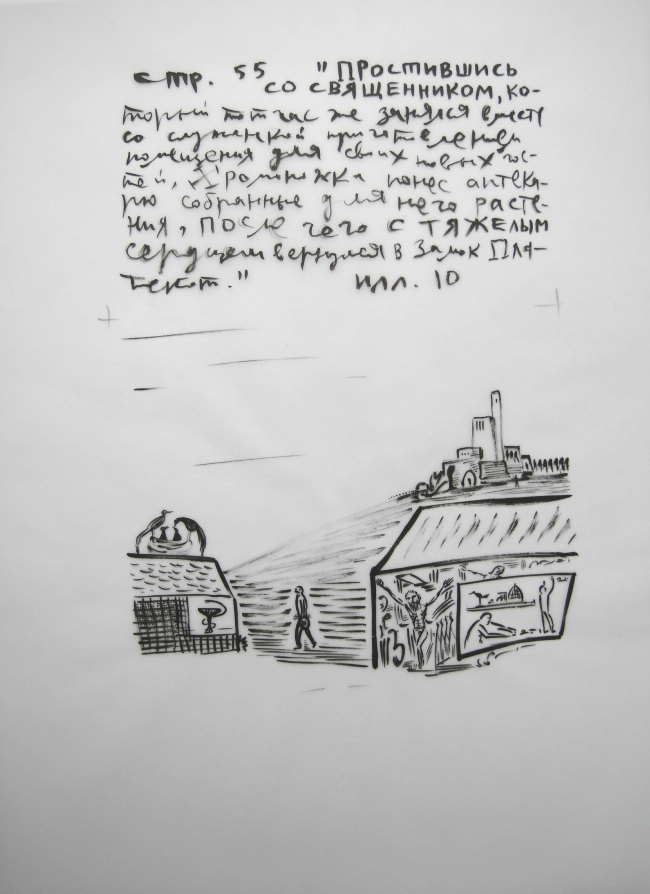 стр. 55 "Простившись
со священником, ко-
торый тотчас же занялся вместе
со служанкой приготовлением
помещения для своих новых гос-
тей, Хромоножка понес аптека-
рю собранные для него расте-
ния, после чего с тяжелым
сердцем вернулся в Замок Пла-
текот."          илл. 10